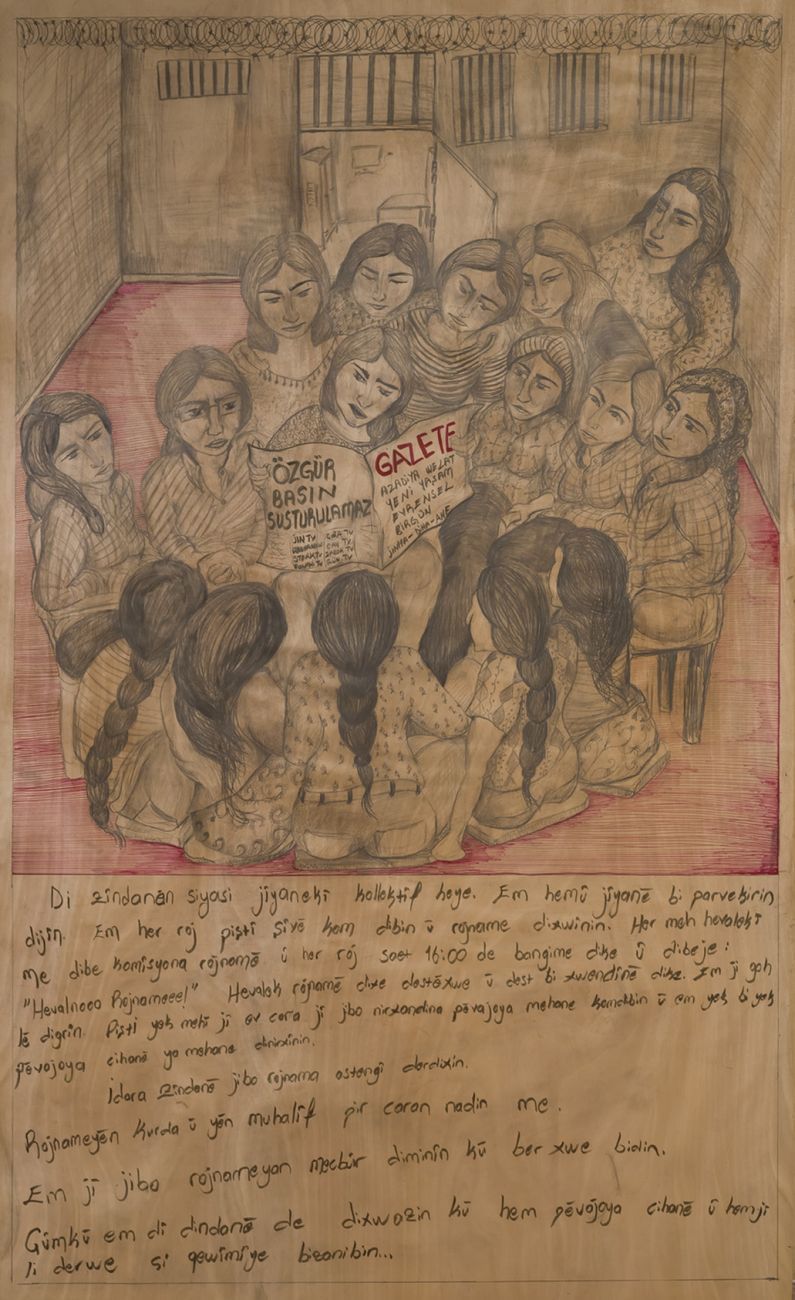 ÖZGÜR
BASIN
SUSTURULAMAZ
JIN TV
GAZETE
AZADIYA WELAT
YENİ YAŞAM
EVRENSEL
BİRGÜN
JINHA - DIHA - ANF
Di zindanan siyasi jîyanekî kollektîf heye. Em hemû jîyanê bi parvekirin
dijîn. Em her roj piştî şîvê kom dibin û rojname dixwînin. Her meh hevalekî
me dibe komîsyona rojnamê û her roj saet 16:00 de bangime dike û dibeje:
"Hevalnooo Rojnameee!" Hevalek rojnamê dixe destêxwe û dest bi xwendinê dike. Em ji goh
lê digrin. Piştî yek mehî jî ev cara jî jibo nirxandina pêvajoya mehane komdibin û em yek bi yek
pêvojoya cihanê ya mehane dinirxînin.
İdara zindanê jibo rojnama astengî derdixin.
Rojnameyên Kurda û yên muhalîf pir caran nadin me.
Em jî jibo rojnameyan mecbûr diminîn kû ber xwe bidin.
Gûmkû em di dindanê de dixwazin kû hem pêvojoya cihanê û hemjî
li derwe si qewîmîye bizanibin...